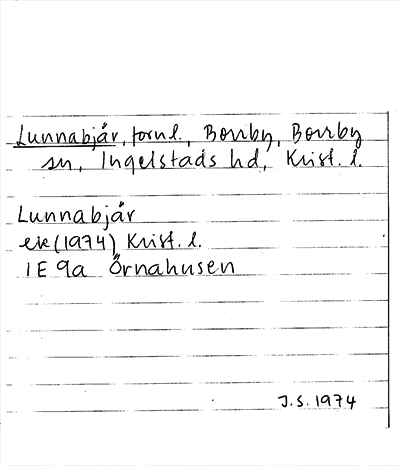 Lunnabjär, fornl., Borrby, Borrby
sn, Ingelstads hd, Krist. l.
Lunnabjär
ek (1974) Krist. l.
1E 9a Örnahusen
J.S. 1974